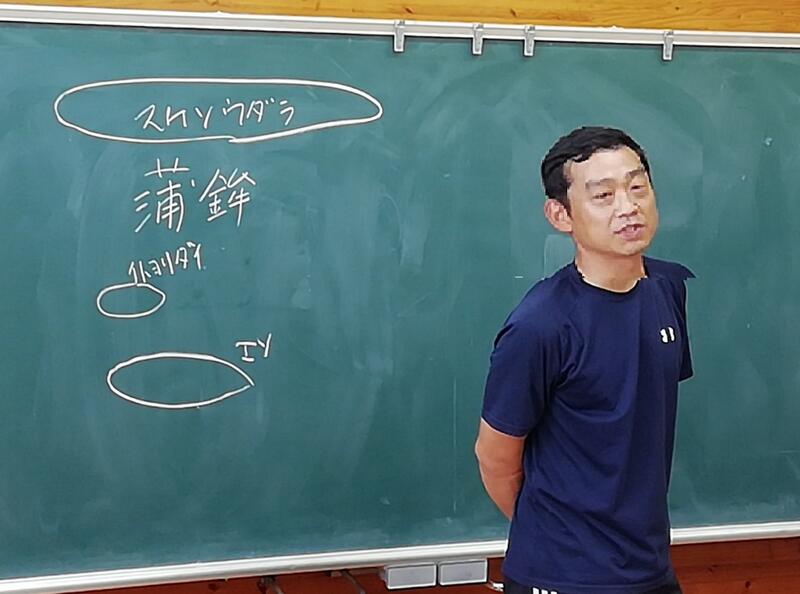 スケソウダラ
蒲鉾
イトヨリダイ
エソ